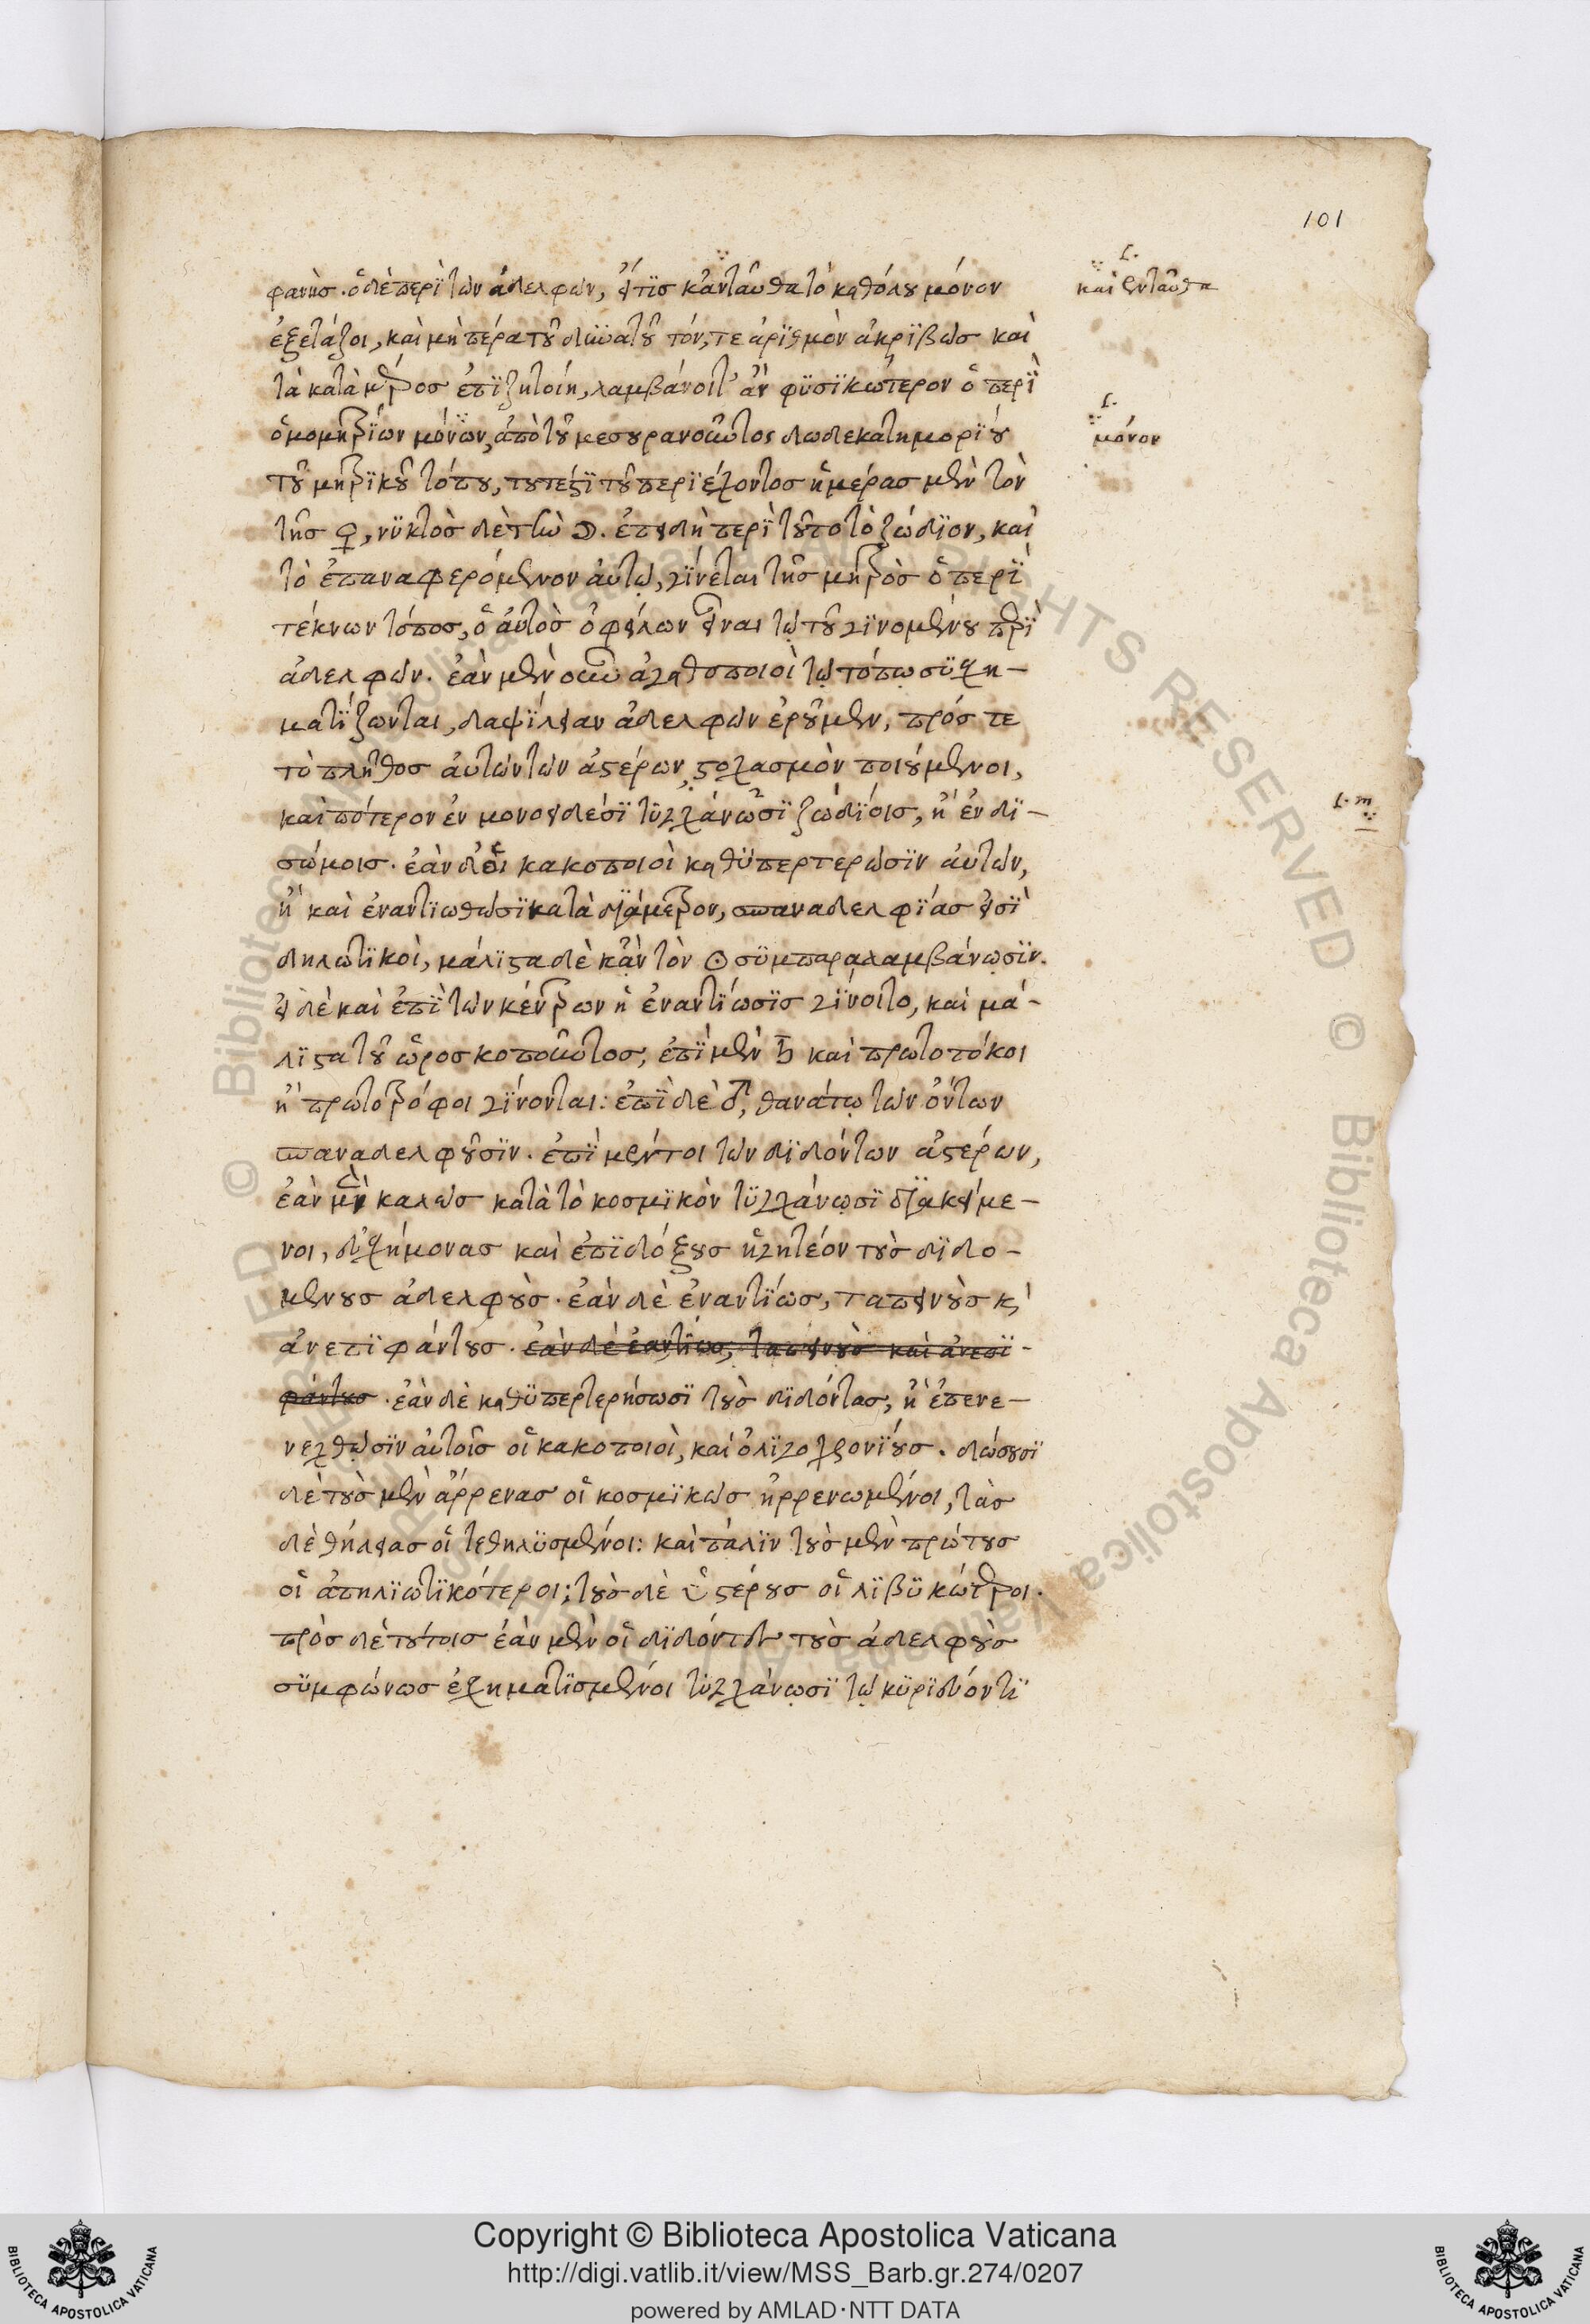 101
φανὴς. ὁ δὲ περὶ τῶν ἀδελφῶν, εἴ τις κἀνταῦθα τὸ καθόλου μόνον
καὶ ἐνταῦθα
ἐξετάζοι, καὶ μὴ πέρα τοῦ δυνατοῦ τόν, τε ἀριθμὸν ἀκριβῶς καὶ
τὰ κατὰ μέρος ἐπιζητοίη, λαμβάνοιτ' ἂν φυσικώτερον ὁ περὶ
ὁμομητρίων μόνων, ἀπὸ τοῦ μεσουρανοῦντος δωδεκατημορίου
μόνον
τοῦ μητρικοῦ τόπου, τουτέστι τοῦ περιέχοντος ἡμέρας μὲν τὸν
τῆς ♀, νυκτὸς δὲ τῶ ☽. ἐπειδὴ περὶ τοῦτο τὸ ζώδιον, καὶ
τὸ ἐπαναφερόμενον αὐτῷ, γίνεται τῆς μητρὸς ὁ περὶ
τέκνων τόπος, ὁ αὐτὸς ὀφείλων εἶναι τῷ τοῦ γινομένου περὶ
ἀδελφῶν. ἐὰν μὲν οὖν ἀγαθοποιοὶ τῷ τόπῳ συσχη-
ματίζωνται, δαψίλειαν ἀδελφῶν ἐροῦμεν, πρός τε
τὸ πλῆθος αὐτῶν τῶν ἀστέρων, στοχασμὸν ποιούμενοι,
καὶ πότερον ἐν μονοειδέσι τυγχάνωσι ζωδίοις, ἢ ἐν δι-
L. m
σώμοις. ἐὰν δὲ οἱ κακοποιοὶ καθυπερτερῶσιν αὐτῶν,
ἢ καὶ ἐναντιωθῶσι κατὰ διάμετρον, σπαναδελφίας εἰσὶ
δηλωτικοὶ, μάλιστα δὲ κἂν τὸν ☉ συμπαραλαμβάνωσιν.
εἰ δὲ καὶ ἐπὶ τῶν κέντρων ἡ ἐναντίωσις γίνοιτο, καὶ μά-
λιστα τοῦ ὡροσκοποῦντος, ἐπὶ μὲν ♄ καὶ πρωτοτόκοι
ἢ πρωτοτρόφοι γίνονται: ἐπὶ δὲ ♂, θανάτῳ τῶν ὄντων
σπαναδελφοῦσιν. ἐπὶ μέντοι τῶν διδόντων ἀστέρων,
ἐὰν μὲν καλῶς κατὰ τὸ κοσμικὸν τυγχάνωσι διακείμε-
νοι, εὐσχήμονας καὶ ἐπιδόξους ἡγητέον τοὺς διδο-
μένους ἀδελφοὺς. ἐὰν δὲ ἐναντίως, ταπεινοὺς κ̀
ἀνεπιφάντους. ἐὰν δὲ ἐναντίως, ταπεινοὺς καὶ ἀνεπι-
φάντους. ἐὰν δὲ καθυπερτερήσωσι τοὺς διδόντας, ἢ ἐπενε-
νεχθῶσιν αὐτοῖς οἱ κακοποιοὶ, καὶ ὀλιγοχρονίους. δώσουσι
δὲ τοὺς μὲν ἄρρενας οἱ κοσμικῶς ἠρρενωμένοι, τὰς
δὲ θήλειας οἱ τεθηλυσμένοι: καὶ πάλιν τοὺς μὲν πρώτους
οἱ ἀπηλιωτικότεροι; τοὺς δὲ ὑστέρους οἱ λιβυκώτεροι.
πρὸς δὲ τούτοις ἐὰν μὲν οἱ διδόντες τοὺς ἀδελφοὺς
συμφώνως ἐσχηματισμένοι τυγχάνωσι τῷ κυριεύοντι
© Biblioteca Apostolica Vaticana ALL RIGHTS RESERVED
Copyright © Biblioteca Apostolica Vaticana
http://digi.vatlib.it/view/MSS_Barb.gr.274/0207
powered by AMLAD·NTT DATA
BIBLIOTECA APOSTOLICA VATICANA
BIBLIOTECA APOSTOLICA VATICANA